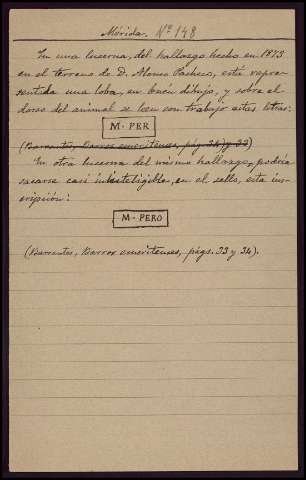 Mérida. Nº 148
En una lucerna, del hallazgo hecho en 1873
en el terreno de D. Alonso Pacheco, está repre-
sentada una loba, en buen dibujo, y sobre el
dorso del animal se leen con trabajo estas letras:
M·PER
(Barrantes, Barros emeritenses, pág. 34) y 33)
En otra lucerna del mismo hallazgo, podría
sacarse casi ininteligible, en el sello, esta ins-
cripción:
M·PERO
(Barrantes, Barros emeritenses, págs. 33 y 34).